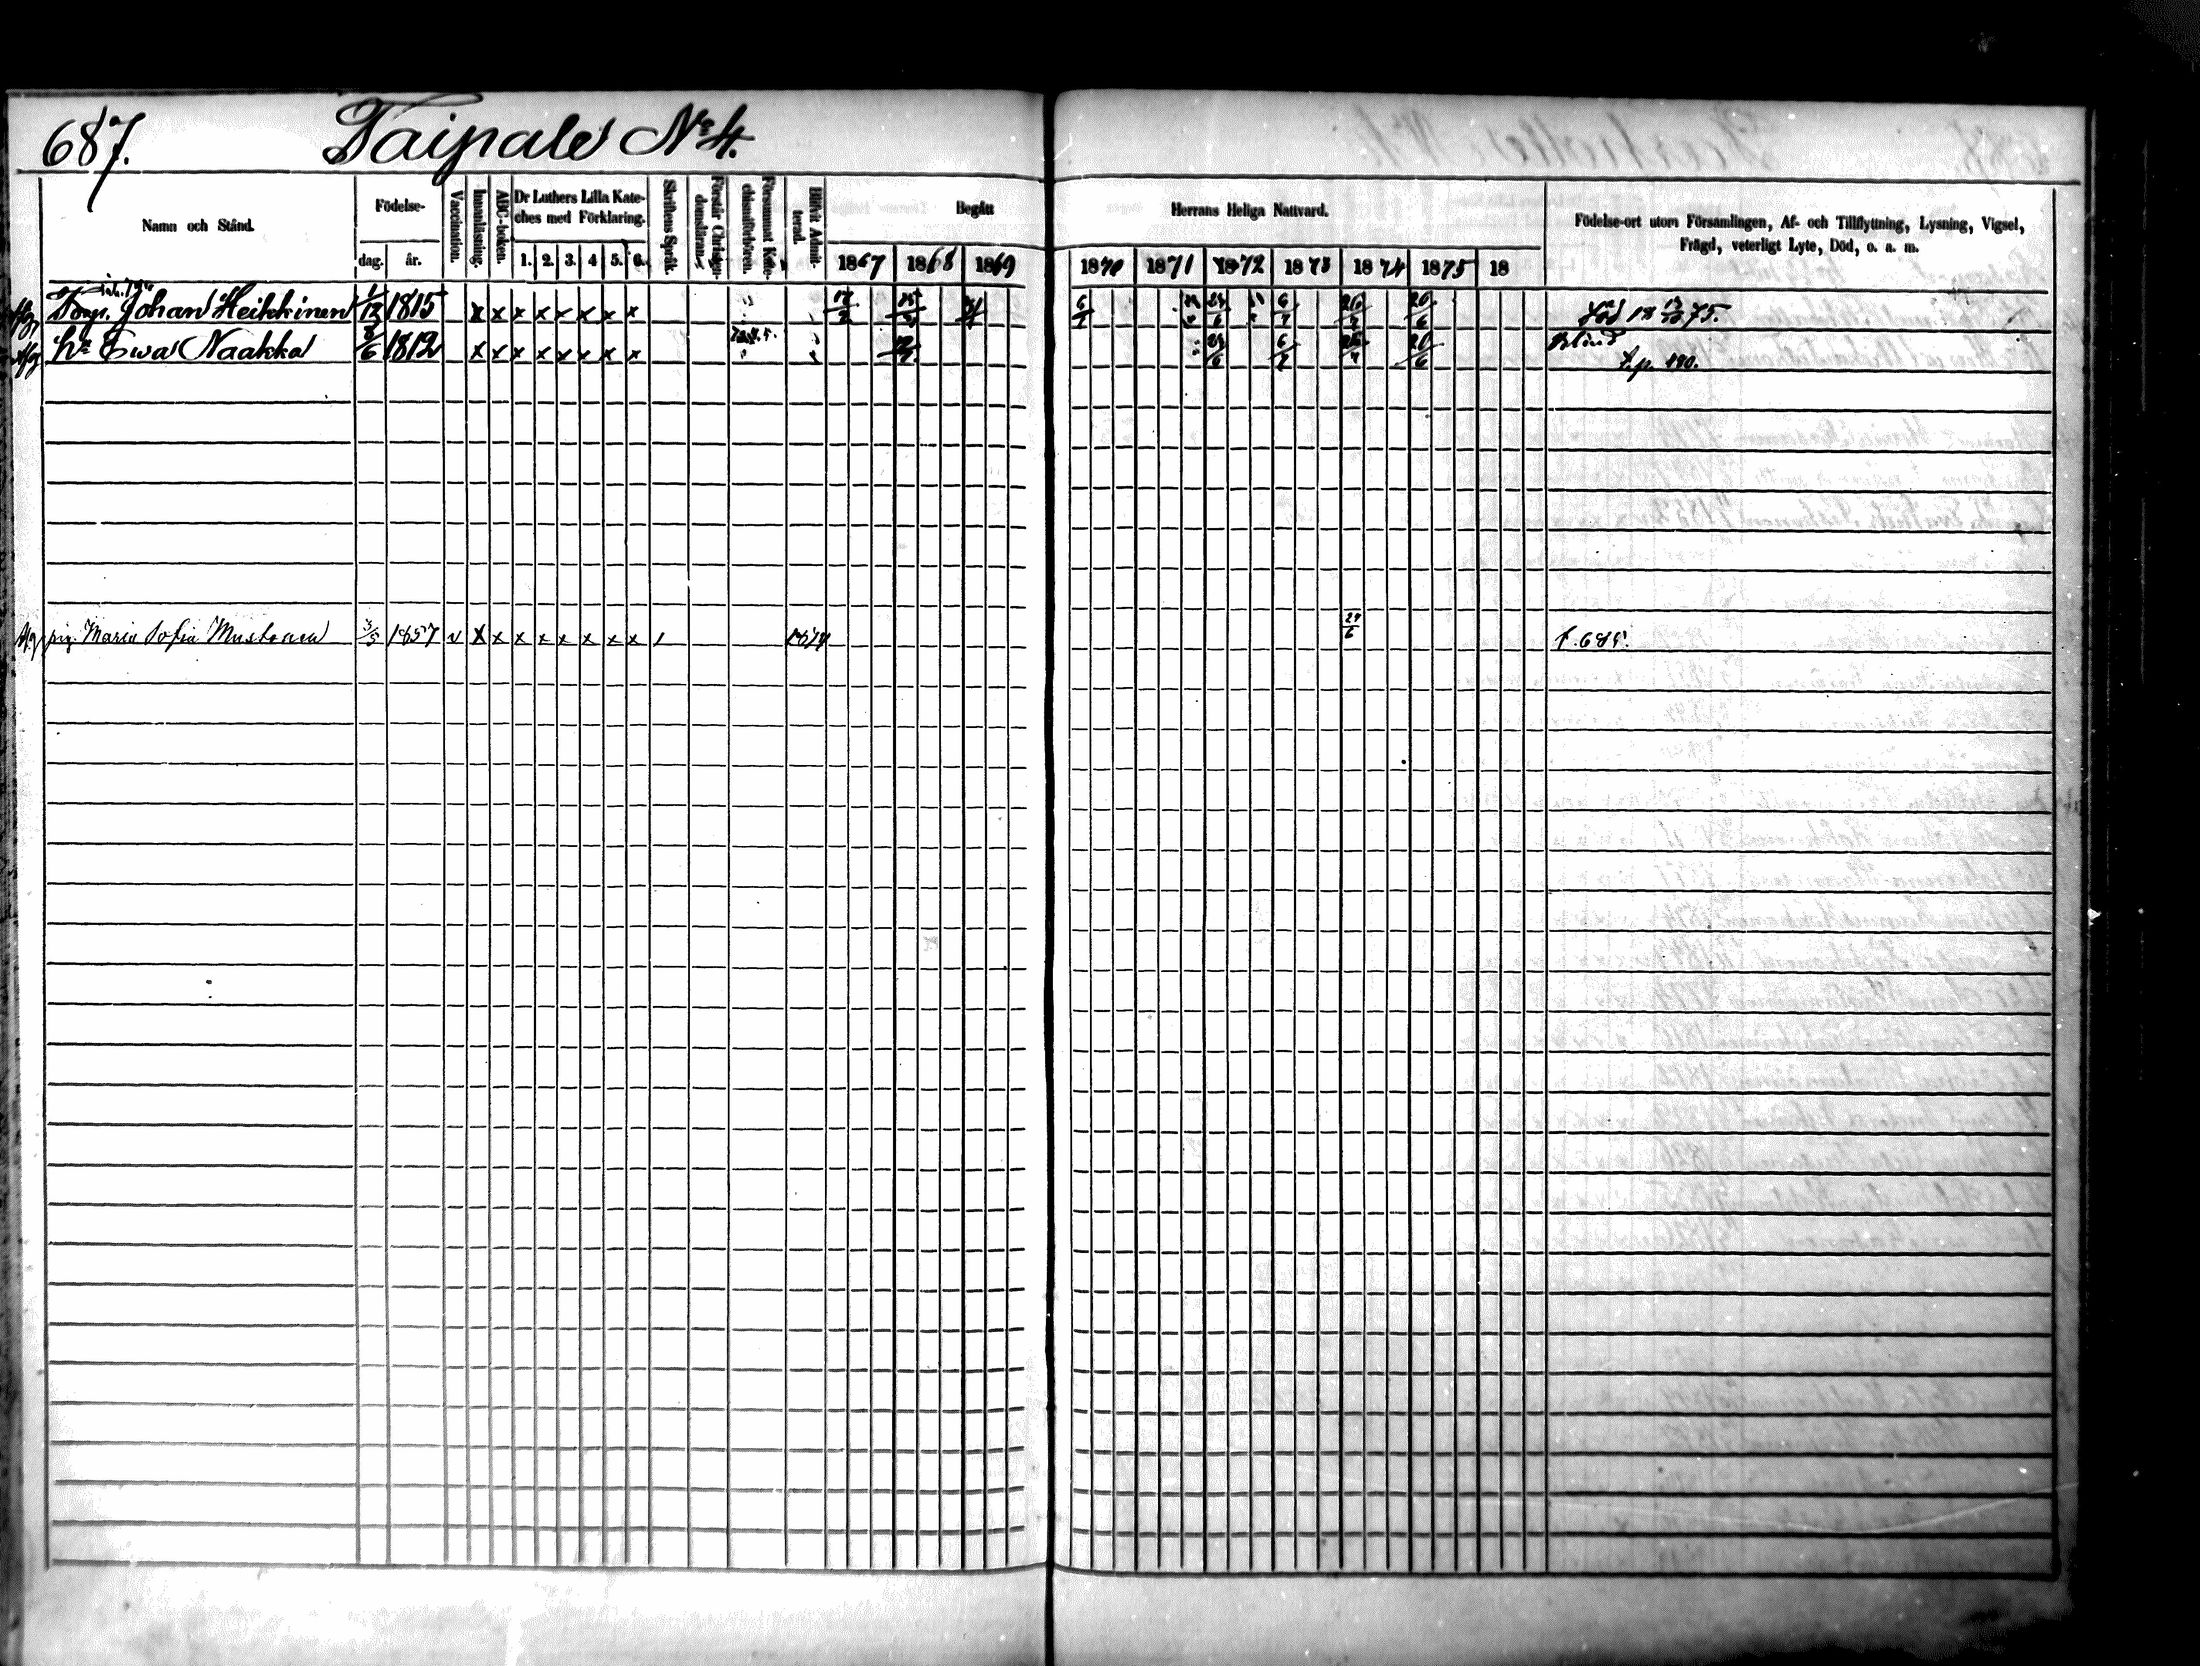 687. Taipale No 4.
Namn och Stånd.
Födelse-
dag. år.
Vaccination.
Innanläsning.
ABC-boken.
Dr Luthers Lilla Kate-
ches med Förklaring.
1. 2. 3. 4 5. 6.
Skriftens Språk.
Förstår Christen-
domslärans
Försummat Kate-
chismiförhören.
Blifvit Admit-
terad.
Begått
1867 1868 1869
Herrans Heliga Nattvard.
1870 1871 1872 1873 1874 1875 18
Födelse-ort utom Församlingen, Af- och Tillflyttning, Lysning, Vigsel,
Frägd, veterligt Lyte, Död, o. a. m.
Johan Heikkinen 1/12 1815 x x x x x x x x 6/7 6/7 26/7 20/6 död 18 75.
Hu Ewa Naakka 2/6 1812 x x x x x x x x 24/6 6/7 26/7 20/6 Blind
pig. Maria Sofia Mustonen 3/5 1857 v x x x x x x x x 1 1874 24/6